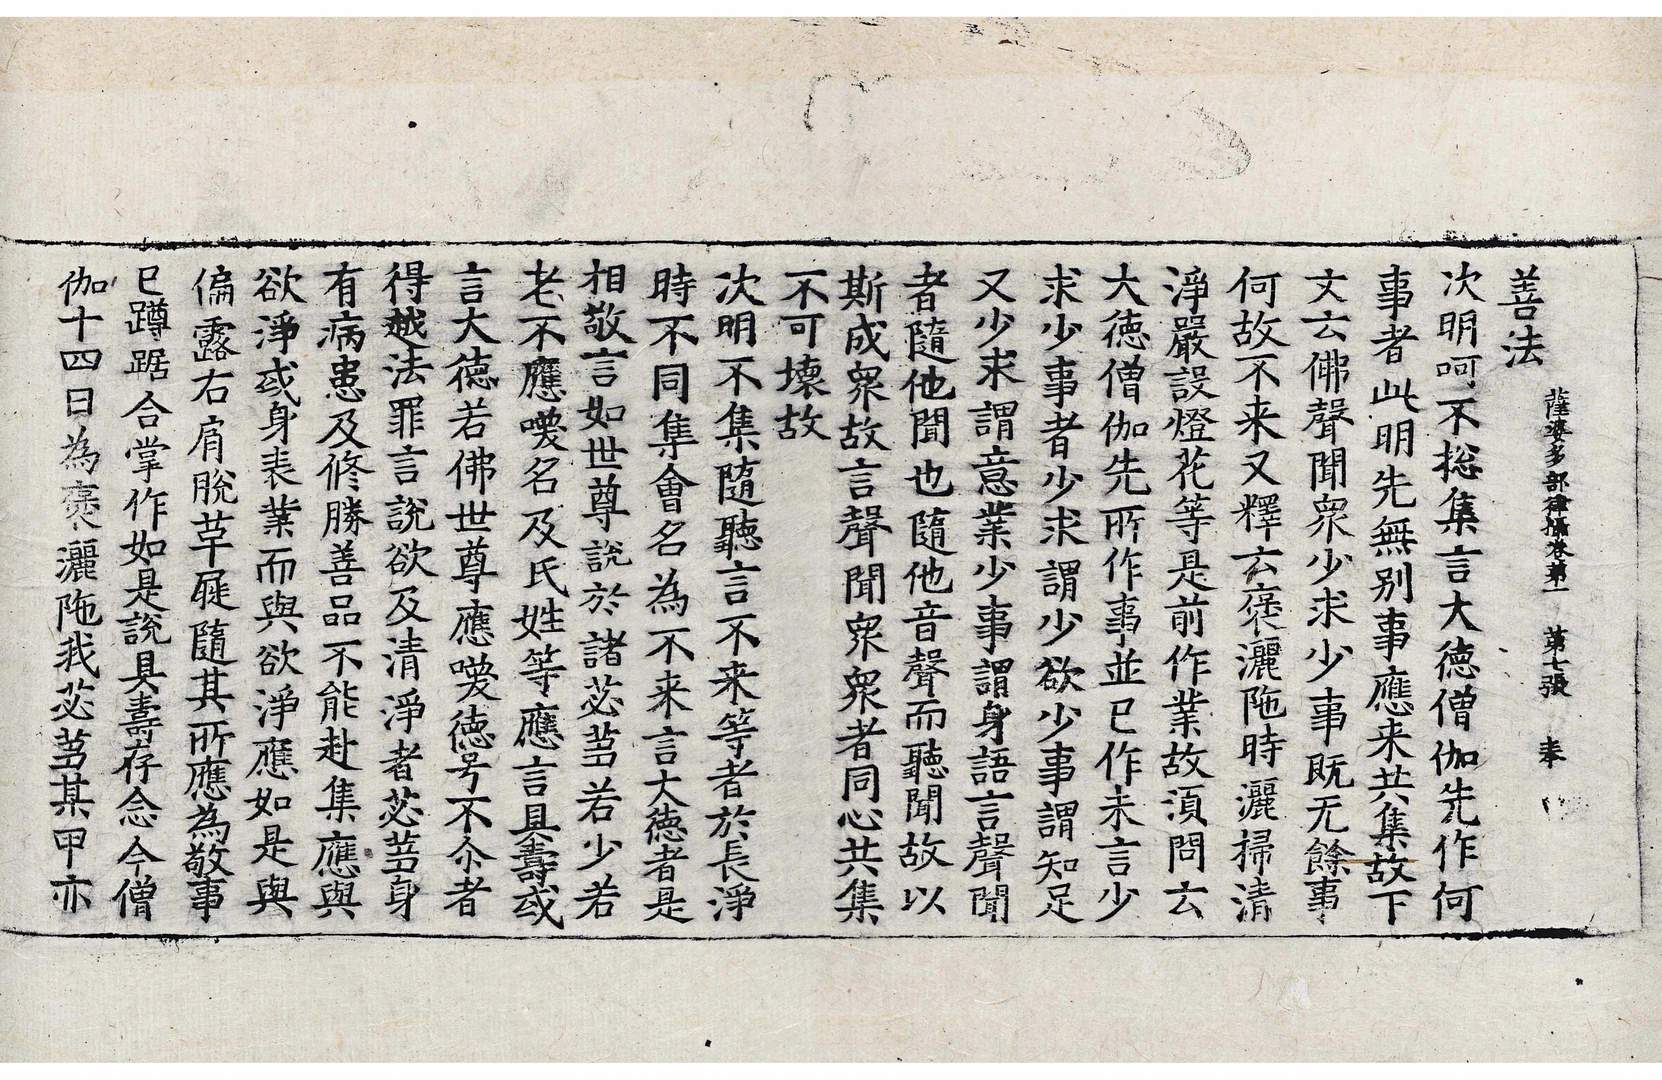 薩婆多部律攝卷第一 第七張 奉
善法
次明呵不捴集言大德僧伽先作何
事者此明先無别事應来共集故下
文云佛聲聞衆少求少事既无餘事
何故不来又釋云褒灑陁時灑掃清
淨嚴設燈花等是前作業故湏問云
大德僧伽先所作事並已作未言少
求少事者少求謂少欲少事謂知足
又少求謂意業少事謂身語言聲聞
者隨他聞也隨他音聲而聽聞故以
斯成衆故言聲聞衆衆者同心共集
不可壊故
次明不集隨聽言不来等者於長淨
時不同集會名為不来言大德者是
相敬言如世尊說於諸苾蒭若少若
老不應喚名及氏姓等應言具壽或
言大德若佛世尊應喚德号不尒者
得越法罪言說欲及清淨者苾蒭身
有病患及修勝善品不能赴集應與
欲淨或身表業而與欲淨應如是與
偏露右肩脫草屣隨其所應為敬事
已蹲踞合掌作如是說具壽存念今僧
伽十四日為褒灑陁我苾蒭某甲亦